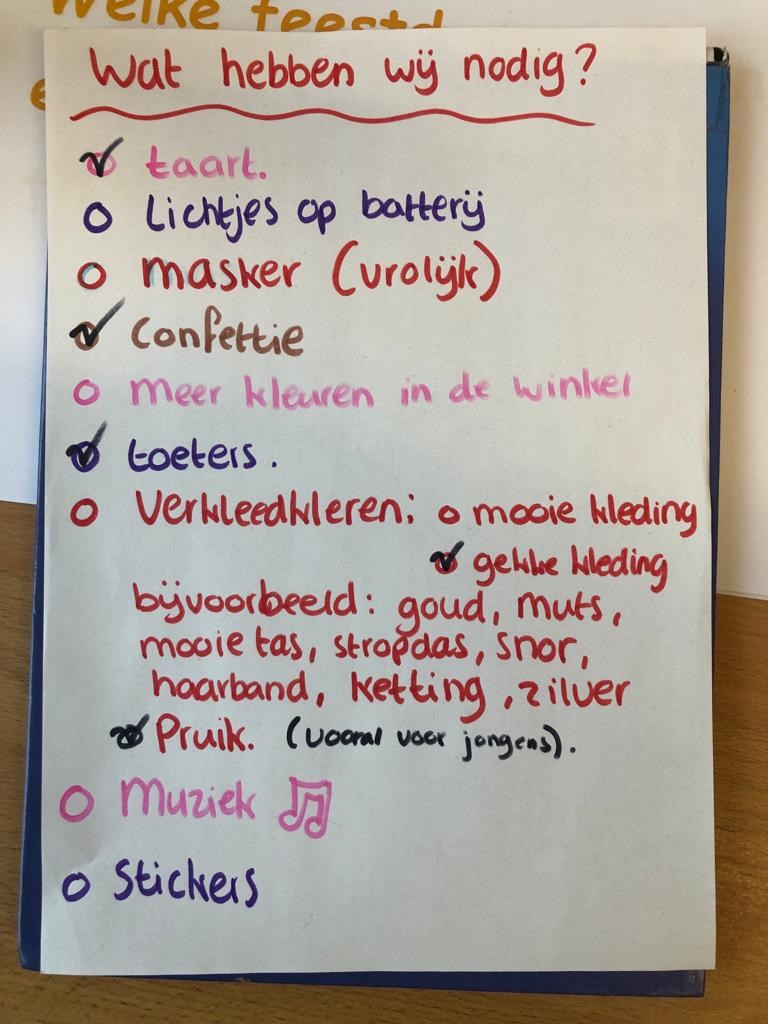 Welke feestd
e
Wat hebben wij nodig?
taart.
Lichtjes op batterij
masker (vrolijk)
Confettie
meer kleuren in de winkel
toeters.
Verkleedkleren: o mooie kleding
gekke kleding
bijvoorbeeld: goud, muts,
mooie tas, stropdas, snor,
haarband, ketting, zilver
Pruik. (vooral voor jongens).
Muziek
Stickers